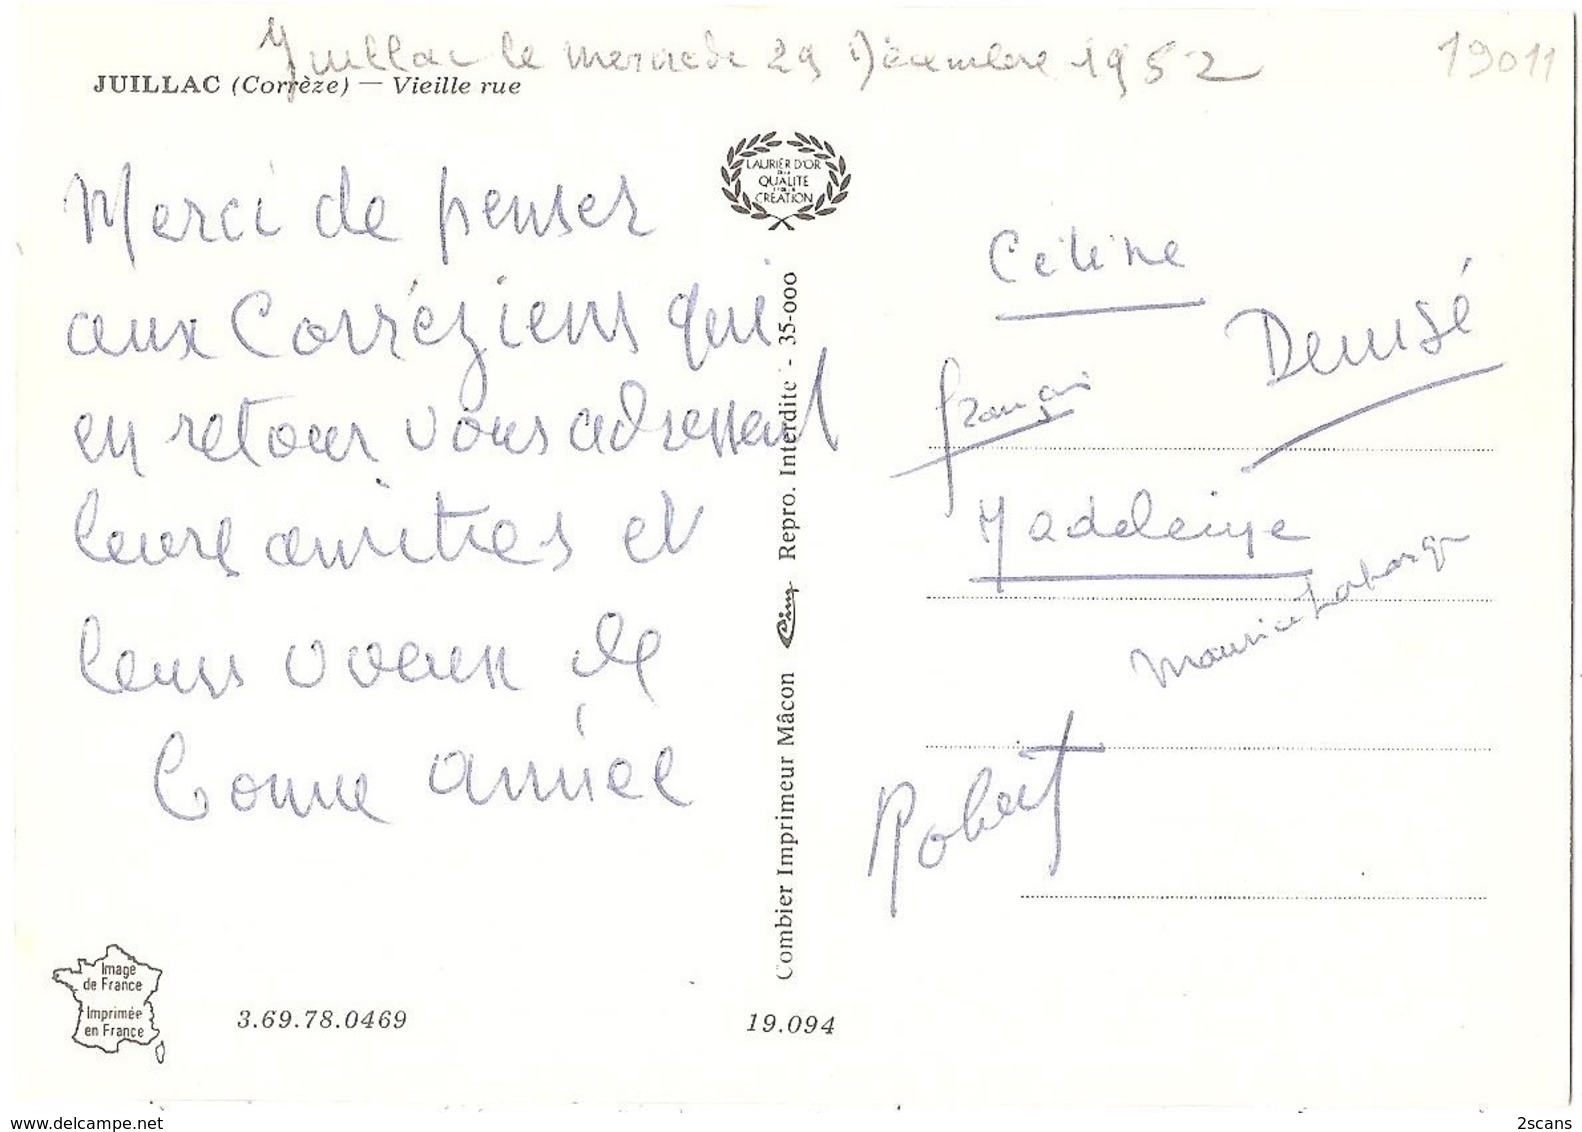 Juillac le mercredi 29 Décembre 1952
19011
JUILLAC (Corrèze) — Vieille rue
Merci de penser
aux Corréziens qui
en retour vous adressent
leurs amitiés et
leurs voeux de
bonne année
LAURIER D'OR
DE LA
QUALITE
ET DE LA
CREATION
Combier Imprimeur Mâcon Cim Repro. Interdite - 35-000
Céline
Denise
françois
Madeleine
Maurice Lafarge
Robert
Image
de France
Imprimée
en France
3.69.78.0469
19.094
www.delcampe.net
2scans